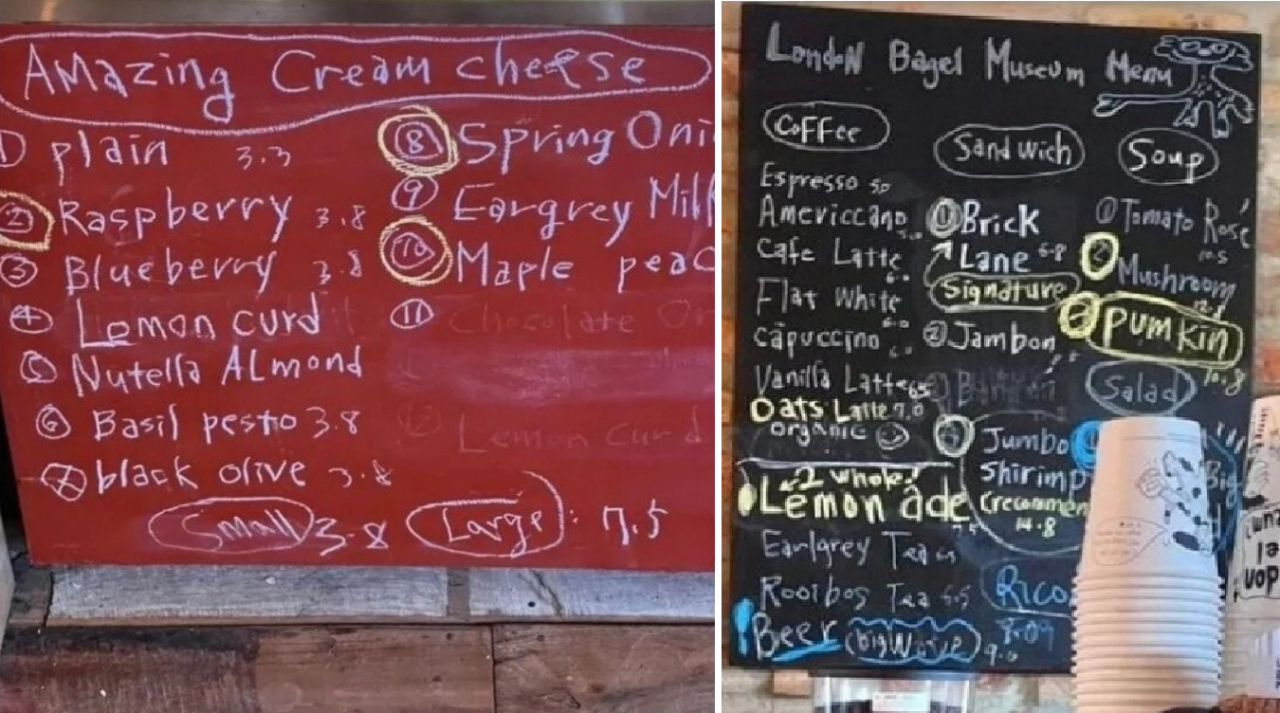 Amazing Cream cheese
① plain 3.3
② Raspberry 3.8
③ Blueberry 3.8
④ Lemon curd
⑤ Nutella Almond
⑥ Basil pesto 3.8
⑦ black olive 3.8
⑧ Spring Oni
⑨ Eargrey Milk
⑩ Maple peac
⑪ Chocolate Or
Lemon curd
Small 3.8 Large: 7.5
London Bagel Museum Menu
Coffee
Espresso 5.0
Americcano
Cafe Latte
Flat White 6.0
capuccino 6.0
Vanilla Latte 6.5
Oats Latte 7.0
organic
2 whole!
Lemon ade
Earlgrey Tea
Rooibos Tea 6.5
Beer (bigWave) 9.0
Sandwich
① Brick
Lane 6.8
Signature
② Jambon
④ Jumbo
Shirimp
(recommen
14.8
Rico
Soup
① Tomato Rosé
10.5
② Mushroom
12.8
③ Pumkin
10.8
Salad
Big